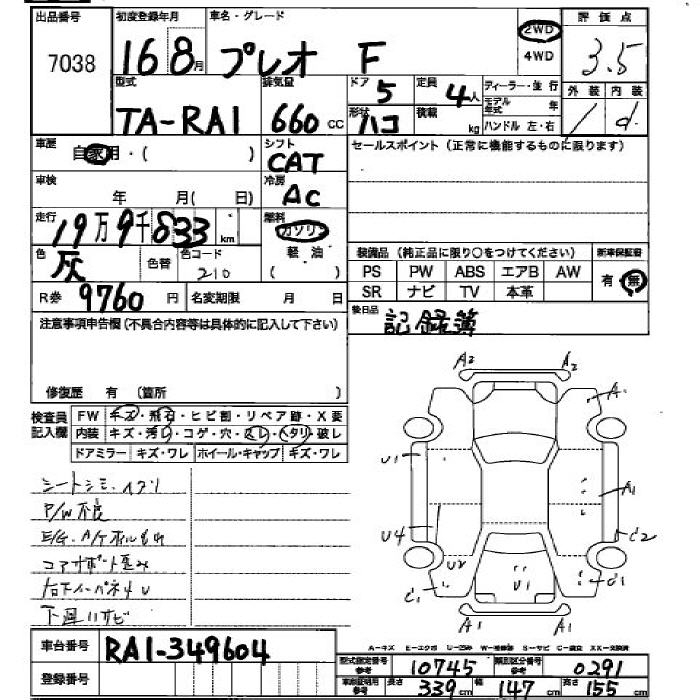 出品番号 7038
初度登録年月 16 8月
車名・グレード プレオ F
2WD
4WD
評価点 3.5
外装 内装 d
型式 TA-RA1
排気量 660 cc
ドア 5
形状 ハコ
定員 4人
積載 kg
ディーラー・並行
モデル年式 年
ハンドル 左・右
車歴 自家用・( )
シフト CAT
セールスポイント (正常に機能するものに限ります)
車検 年 月 (日)
冷房 AC
走行 19万9千833 km
燃料 ガソリン
軽油
( )
色 灰 色替 色コード 210
装備品 (純正品に限り○をつけてください)
新車保証書 有・無
PS PW ABS エアB AW
SR ナビ TV 本革
R券 9760 円 名変期限 月 日
後日品 記録簿
注意事項申告欄 (不具合内容等は具体的に記入して下さい)
修復歴 有 (箇所 )
検査員記入欄
FW キズ・飛石・ヒビ割・リペア跡・X 要
内装 キズ・汚レ・コゲ・穴・スレ・ヘタリ・破レ
ドアミラー キズ・ワレ ホイール・キャップ キズ・ワレ
P/W不良
コアサポート歪み
下廻りサビ
A2 A2
A
U1 A1
U4 C2
U2 U1
C1 C1
A1 A1
車台番号 RA1-349604
登録番号
A-キズ E-エクボ U-凹み W-補修跡 S-サビ C-腐食 XX-交換済
型式指定番号 参考 10745 類別区分番号 参考 0291
車庫証明用 参考 長さ 339cm 幅 147cm 高さ 155cm